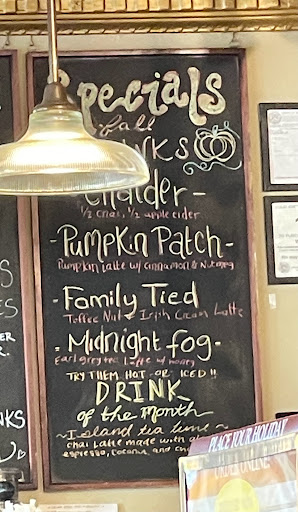 Specials
fall
NKS
Chaider -
½ Chai, ½ apple cider
- Pumpkin Patch -
Pumpkin Latte w/ cinnamon & Nutmeg
- Family Tied
Toffee Nut + Irish Cream Latte
- Midnight fog -
Earl grey tea Latte w/ honey
TRY THEM HOT OR ICED!!
DRINK
of the Month
~ Island tea time ~
chai Latte made with
espresso, coconut, and
PLACE YOUR HOLIDAY
ORDER ONLINE